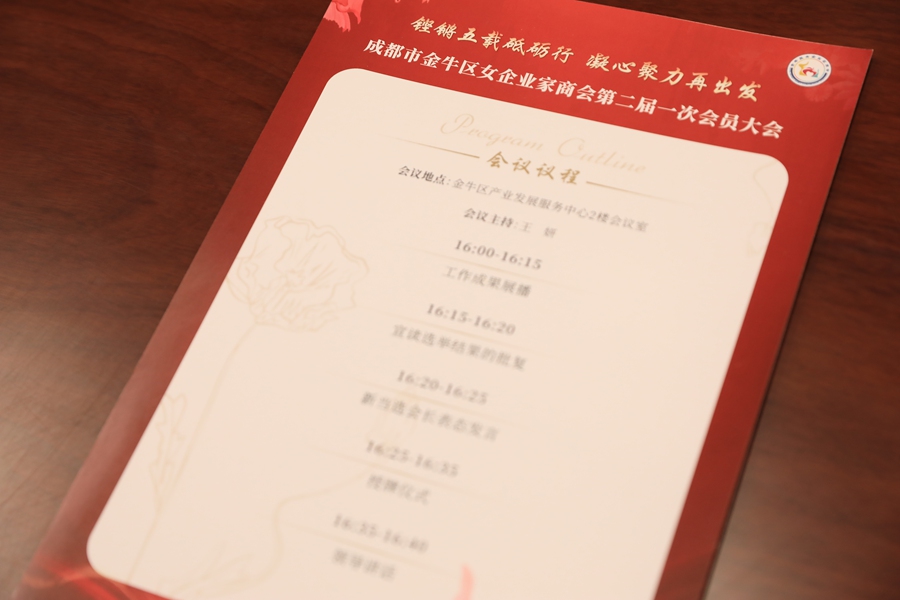 铿锵五载砥砺行 凝心聚力再出发
成都市金牛区女企业家商会第二届一次会员大会
Program Outline
会议议程
会议地点：金牛区产业发展服务中心2楼会议室
会议主持：王 妍
16:00-16:15
工作成果展播
16:15-16:20
宣读选举结果的批复
16:20-16:25
新当选会长表态发言
16:25-16:35
授牌仪式
16:35-16:40
领导讲话